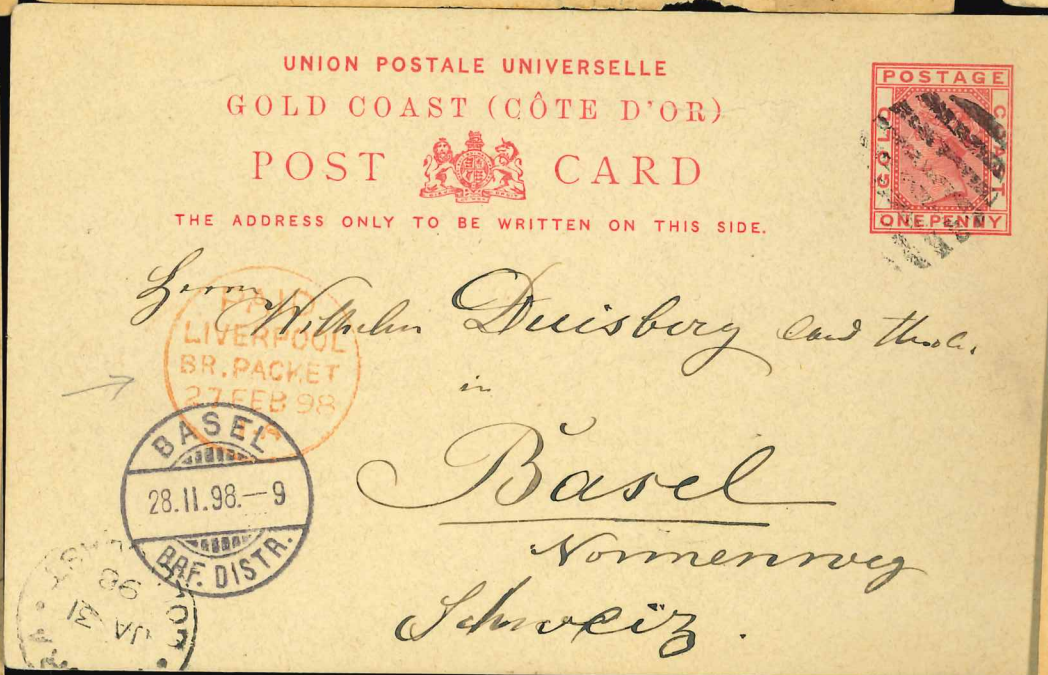 UNION POSTALE UNIVERSELLE
GOLD COAST (CÔTE D'OR)
POST CARD
THE ADDRESS ONLY TO BE WRITTEN ON THIS SIDE.
POSTAGE
GOLD COAST
ONE PENNY
Herrn Wilhelm Duisberg cand theol.
in
Basel
Nonnenweg
Schweiz.
PAID
LIVERPOOL
BR. PACKET
27 FEB 98
BASEL
28.II.98.—9
BRF. DISTR.
JA 31
98